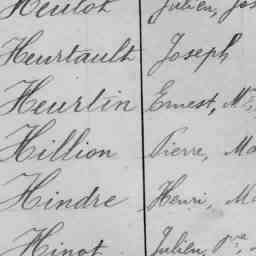 Heulot Julien, Jos
Heurtault Joseph
Heurlin Ernest, Mie,
Hillion Pierre, Ma
Hindre Henri, Ma
Hinot Julien, Pre,